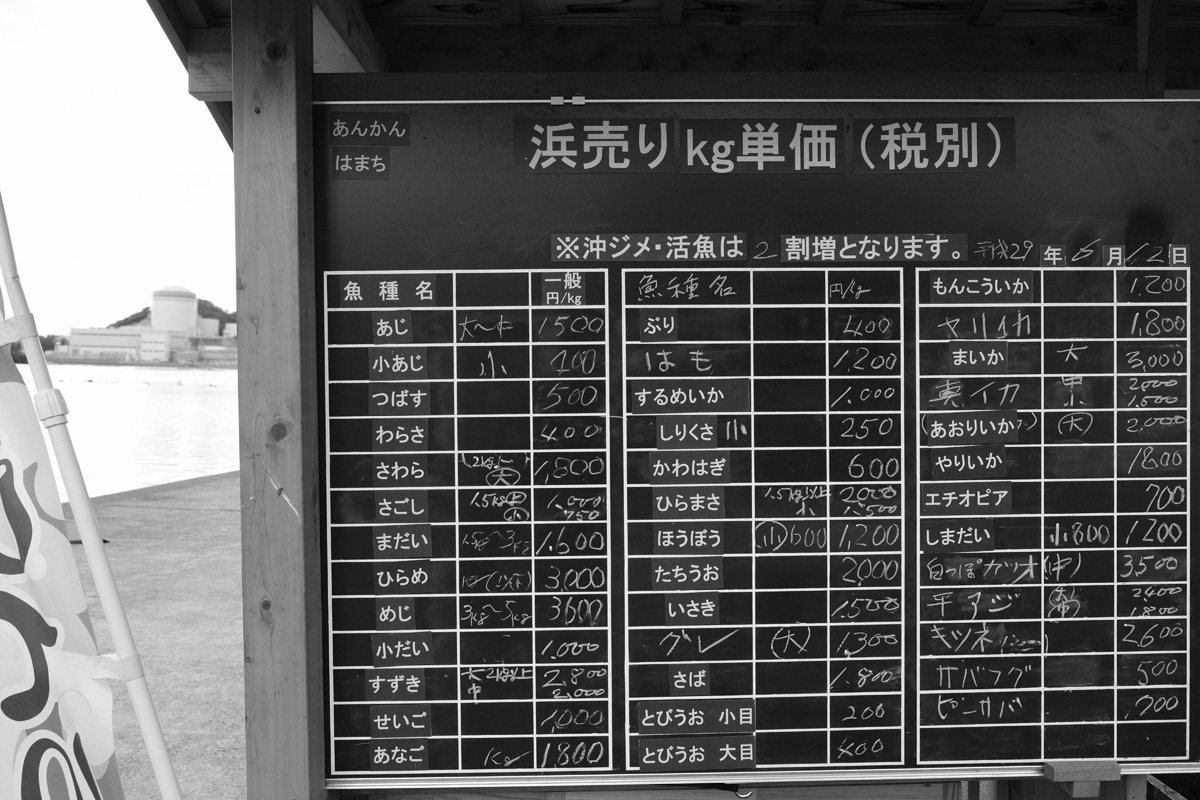 あんかん
はまち
浜売り kg単価（税別）
※沖ジメ・活魚は 2 割増となります。 平成29 年 6 月 12 日
魚 種 名 一般 円/kg
あじ 大〜中 1500
小あじ 小 400
つばす 500
わらさ 400
さわら (大) 1,800
さごし 1.5kg (中) 1,000 (小) 750
まだい 1.5kg〜3kg 1,600
ひらめ 3,000
めじ 3kg〜5kg 3600
小だい 1,000
すずき 大 2kg以上 2,800 中 2,000
せいご 1,000
あなご Kg 1,800
魚種名 円/kg
ぶり 400
はも 1,200
するめいか 1,000
しりくさ 小 250
かわはぎ 600
ひらまさ 1.5kg以上 2000 小 1,500
ほうぼう (小)600 1,200
たちうお 2,000
いさき 1,500
グレ (大) 1,300
さば 1,800
とびうお 小目 200
とびうお 大目 400
もんこういか 1,200
ヤリイカ 1,800
まいか 大 3,000
真イカ 中 2000 小 1,500
(あおりいか) (大) 2,000
やりいか 1800
エチオピア 700
しまだい 小800 1,200
白っぽカツオ(中) 3,500
平アジ (大) 2400 (中) 1,800
キツネ 2,600
サバフグ 500
ピンサバ 700